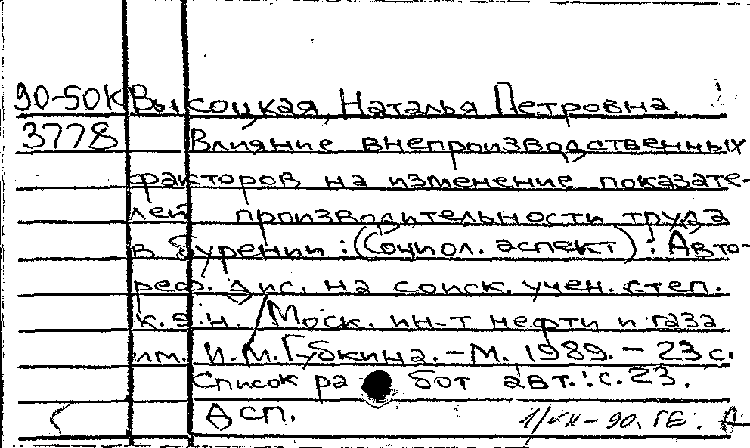 90-50К Высоцкая, Наталья Петровна
3778 Влияние внепроизводственных
факторов на изменение показате-
лей производительности труда
в бурении : (Социол. аспект) : Авто-
реф. дис. на соиск. учен. степ.
к.э.н. / Моск. ин-т нефти и газа
им. И.М. Губкина. - М. 1989. - 23 с.
Список работ авт.: с. 23.
ДСП.